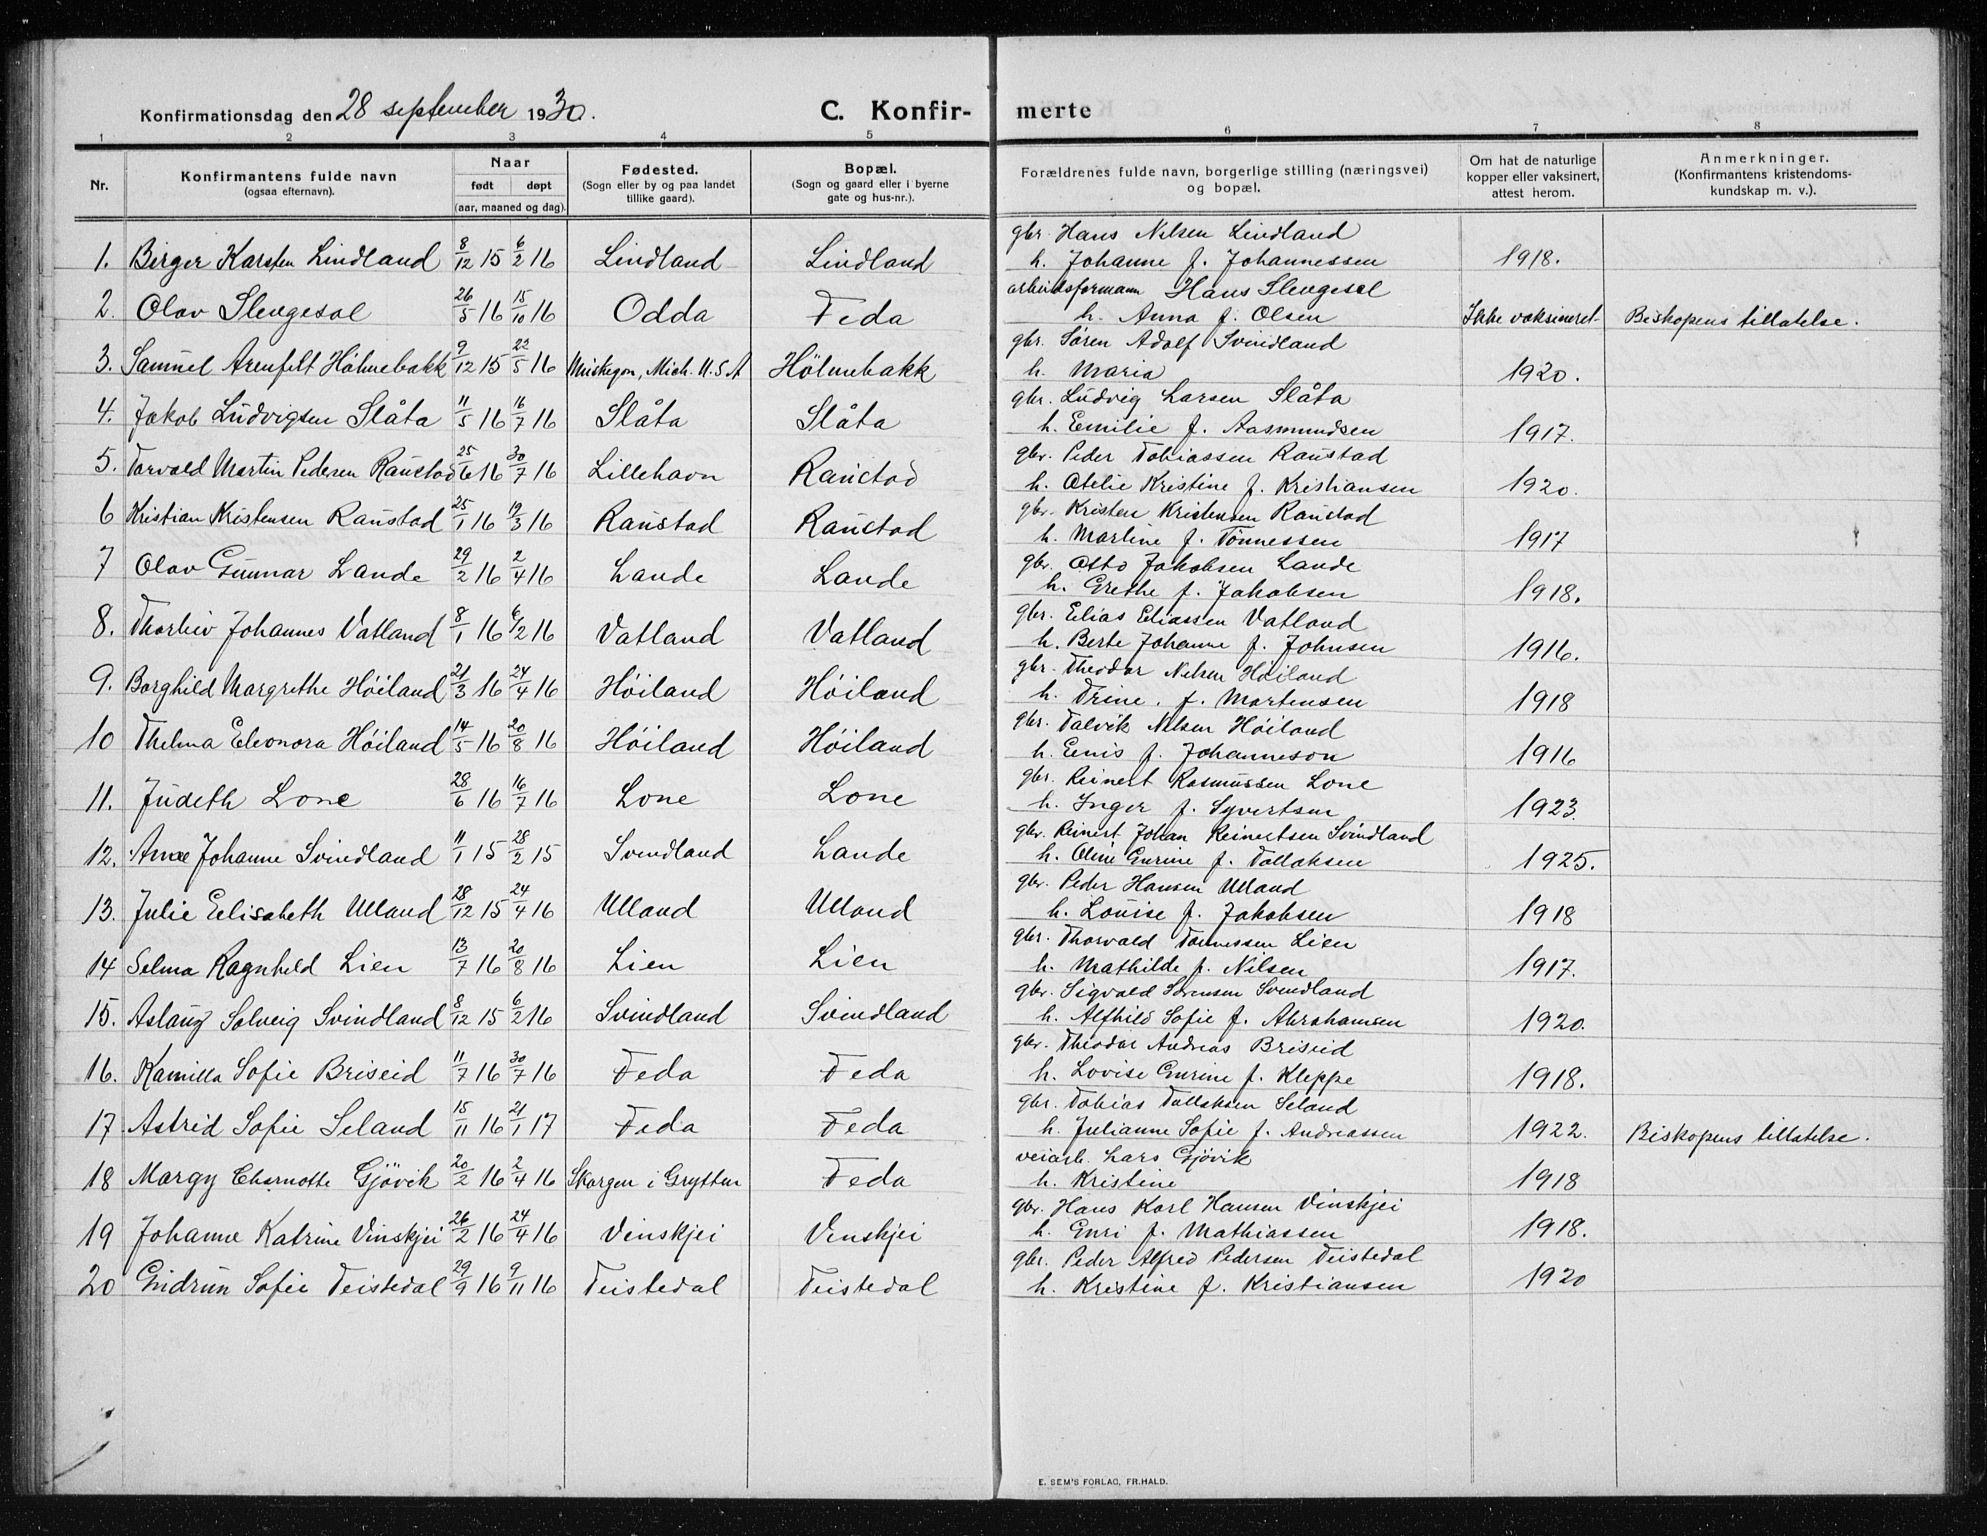 Konfirmationsdag den 28 september 1930. C. Konfir- merte
1 2 3 4 5 6 7 8
Nr. Konfirmantens fulde navn (ogsaa efternavn). Naar født døpt (aar, maaned og dag). Fødested. (Sogn eller by og paa landet tillike gaard). Bopæl. (Sogn og gaard eller i byerne gate og hus-nr.). Forældrenes fulde navn, borgerlige stilling (næringsvei) og bopæl. Om hat de naturlige kopper eller vaksinert, attest herom. Anmerkninger. (Konfirmantens kristendoms- kundskap m. v.).
gbr. Hans Nilsen Lindland
1. Birger Karsten Lindland 8/12 15 6/2 16 Lindland Lindland h. Johanne f. Johannessen 1918.
arbeidsformann Hans Slengesol
2. Olav Slengesol 26/5 16 15/10 16 Odda Feda h. Anna f. Olsen Ikke vaksineret Biskopens tillatelse.
gbr. Søren Adolf Svindland
3. Samuel Arenfelt Hölmebakk 9/12 15 22/5 16 Muskegon, Mich. U.S.A Hölmebakk h. Maria 1920.
gbr. Ludvig Larsen Slåta
4. Jakob Ludvigsen Slåta 11/5 16 16/7 16 Slåta Slåta h. Emilie f. Aasmundsen 1917.
gbr. Peder Tobiassen Raustad
5. Torvald Martin Pedersen Raustad 25/6 16 30/7 16 Lillehavn Raustad h. Otelie Kristine f. Kristiansen 1920.
gbr. Kristen Kristensen Raustad
6 Kristian Kristensen Raustad 25/1 16 19/3 16 Raustad Raustad h. Martine f. Tönnessen 1917
gbr. Otto Jakobsen Lande
7 Olav Gunnar Lande 29/2 16 2/4 16 Lande Lande h. Grethe f. Jakobsen 1918.
gbr. Elias Eliassen Vatland
8. Thorleiv Johannes Vatland 8/1 16 6/2 16 Vatland Vatland h. Berte Johanne f. Johnsen 1916.
gbr. Theodor Nilsen Höiland
9. Borghild Margrethe Höiland 21/3 16 24/4 16 Höiland Höiland h. Trine. f. Martensen 1918
gbr. Talvik Nilsen Höiland
10 Thelma Eleonora Höiland 14/5 16 20/8 16 Höiland Höiland h. Enis f. Johanneson 1916
gbr. Reinert Rasmussen Lone
11. Judeth Lone 28/6 16 16/7 16 Lone Lone h. Inger f. Syvertsen 1923.
gbr. Reinert Johan Reinertsen Svindland
12. Anne Johanne Svindland 11/1 15 28/2 15 Svindland Lande h. Oline Gurine f. Tollaksen 1925.
gbr. Peder Hansen Ulland
13. Julie Elisabeth Ulland 28/12 15 24/4 16 Ulland Ulland h. Louise f. Jakobsen 1918
gbr. Thorvald Tönnessen Lien
14 Selma Ragnhild Lien 13/7 16 20/8 16 Lien Lien h. Mathilde f. Nilsen 1917.
gbr. Sigvald Sörensen Svindland
15. Aslaug Solveig Svindland 8/12 15 6/2 16 Svindland Svindland h. Alfhild Sofie f. Abrahamsen 1920.
gbr. Theodor Andreas Briseid
16. Kamilla Sofie Briseid 11/7 16 30/7 16 Feda Feda h. Lovise Gurine f. Kleppe 1918.
gbr. Tobias Tollaksen Seland
17 Astrid Sofie Seland 15/11 16 21/1 17 Feda Feda h. Julianne Sofie f. Andreassen 1922. Biskopens tillatelse.
veiarb. Lars Gjövik
18 Margy Charnotte Gjövik 20/2 16 2/4 16 Skorgen i Grytten Feda h. Kristine 1918
gbr. Hans Karl Hansen Vinskjei
19 Johanne Katrine Vinskjei 26/2 16 24/4 16 Vinskjei Vinskjei h. Guri f. Mathiassen 1918.
gbr. Peder Alfred Pedersen Teistedal
20 Gudrun Sofie Teistedal 29/9 16 9/11 16 Teistedal Teistedal h. Kristine f. Kristiansen 1920
E. SEM'S FORLAG, FR.HALD.